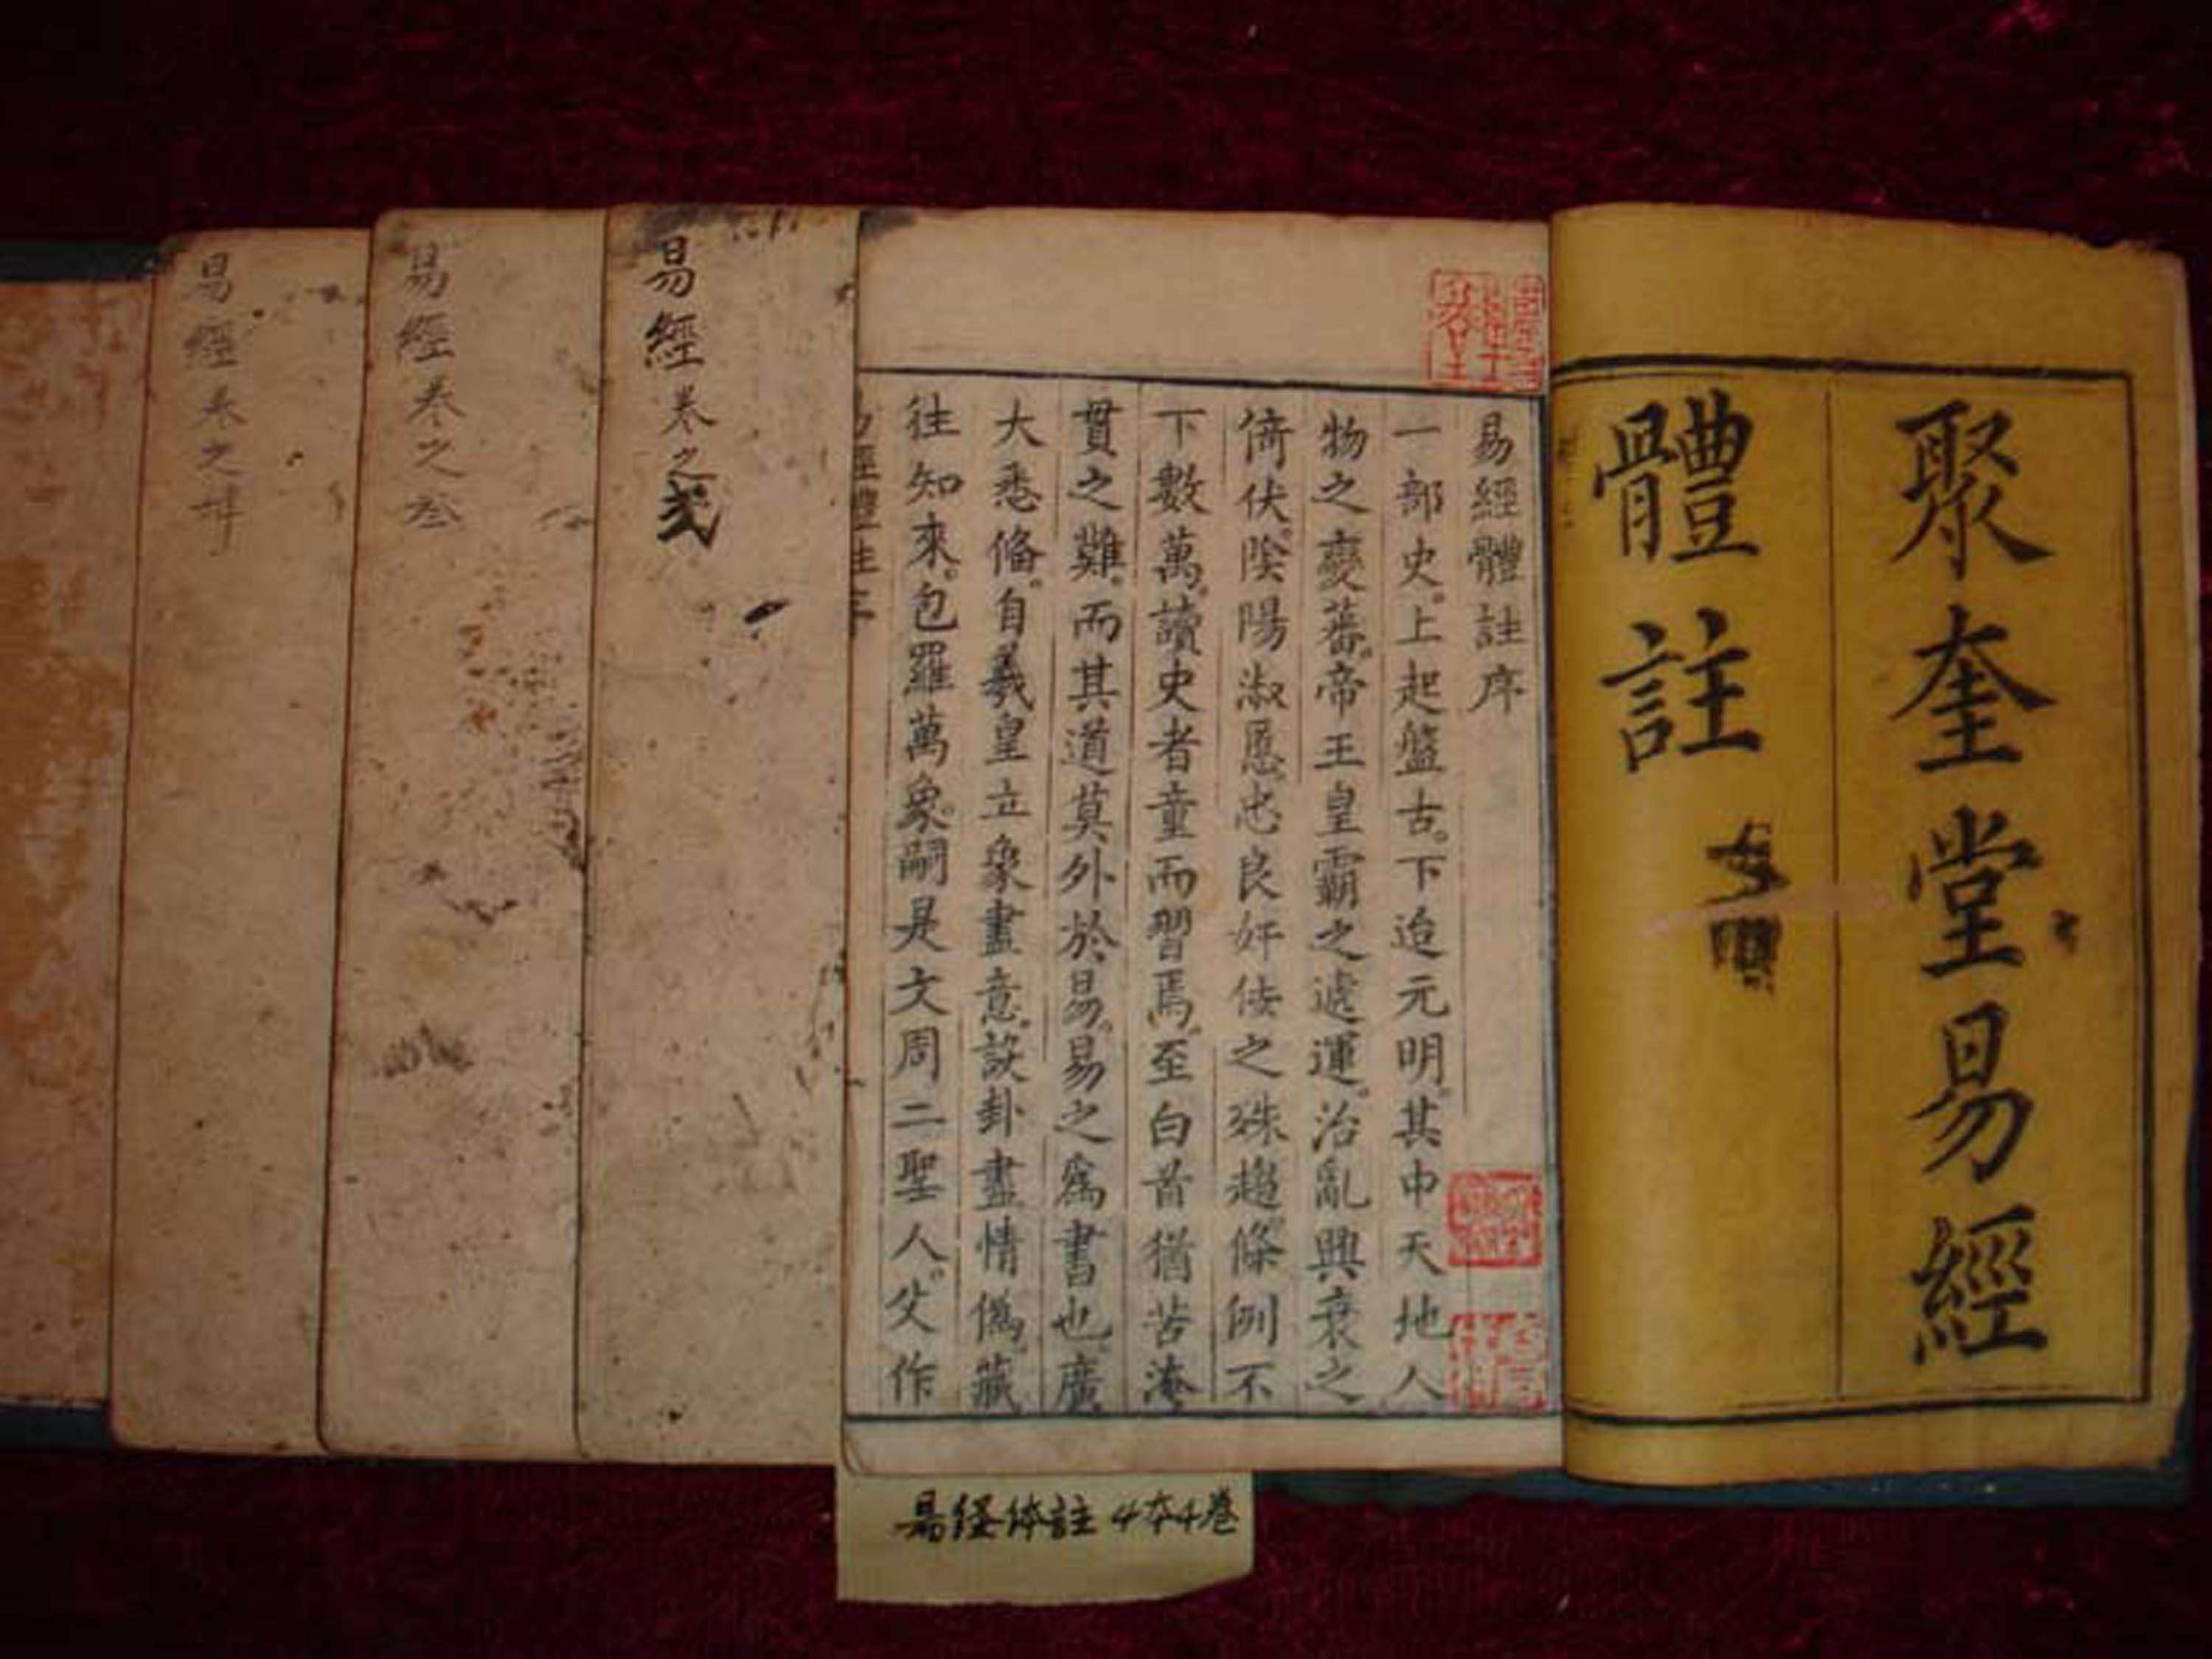 聚奎堂易經
體註
易經體註序
一部史。上起盤古。下迨元明。其中天地人
物之變蕃。帝王皇霸之遞運。治亂興衰之
倚伏。陰陽淑慝。忠良奸佞之殊趨。條例不
下數萬。讀史者童而習焉。至白首猶苦淹
貫之難。而其道莫外於易。易之爲書也。廣
大悉備。自羲皇立象畫意。設卦盡情僞。藏
往知來。包羅萬象。嗣是文周二聖人。父作
易經卷之弍
易經卷之叁
易經卷之肆
易经体註4本4卷